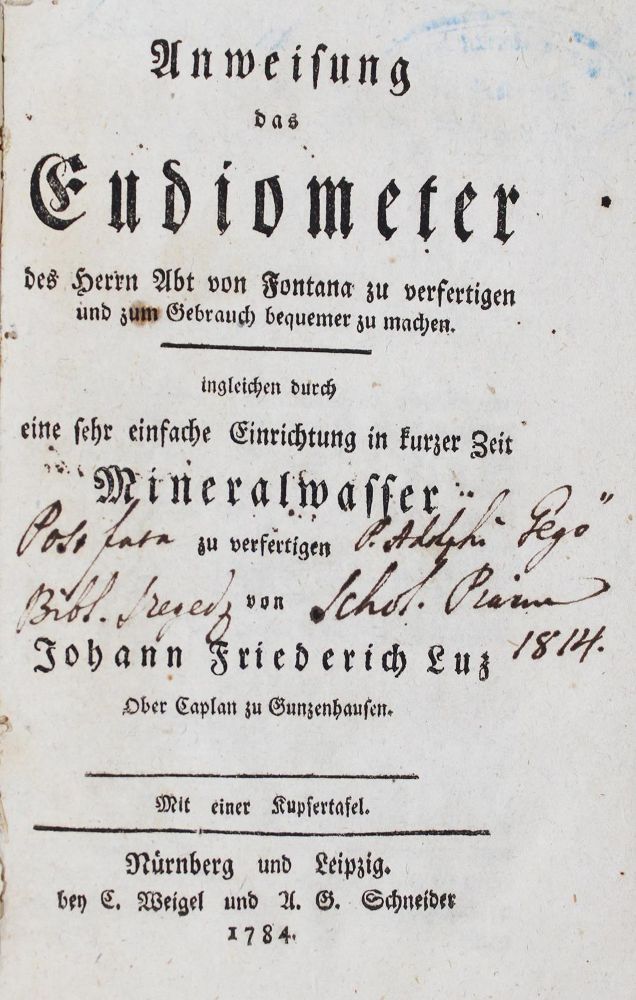 Anweisung
das
Eudiometer
des Herrn Abt von Fontana zu verfertigen
und zum Gebrauch bequemer zu machen.
ingleichen durch
eine sehr einfache Einrichtung in kurzer Zeit
Mineralwasser
Post fata zu verfertigen P. Adolphi Pegö
Bibl. Szeged von Schol. Piarum
1814.
Johann Friederich Luz
Ober Caplan zu Gunzenhausen.
Mit einer Kupfertafel.
Nürnberg und Leipzig.
bey C. Weigel und A. G. Schneider
1784.